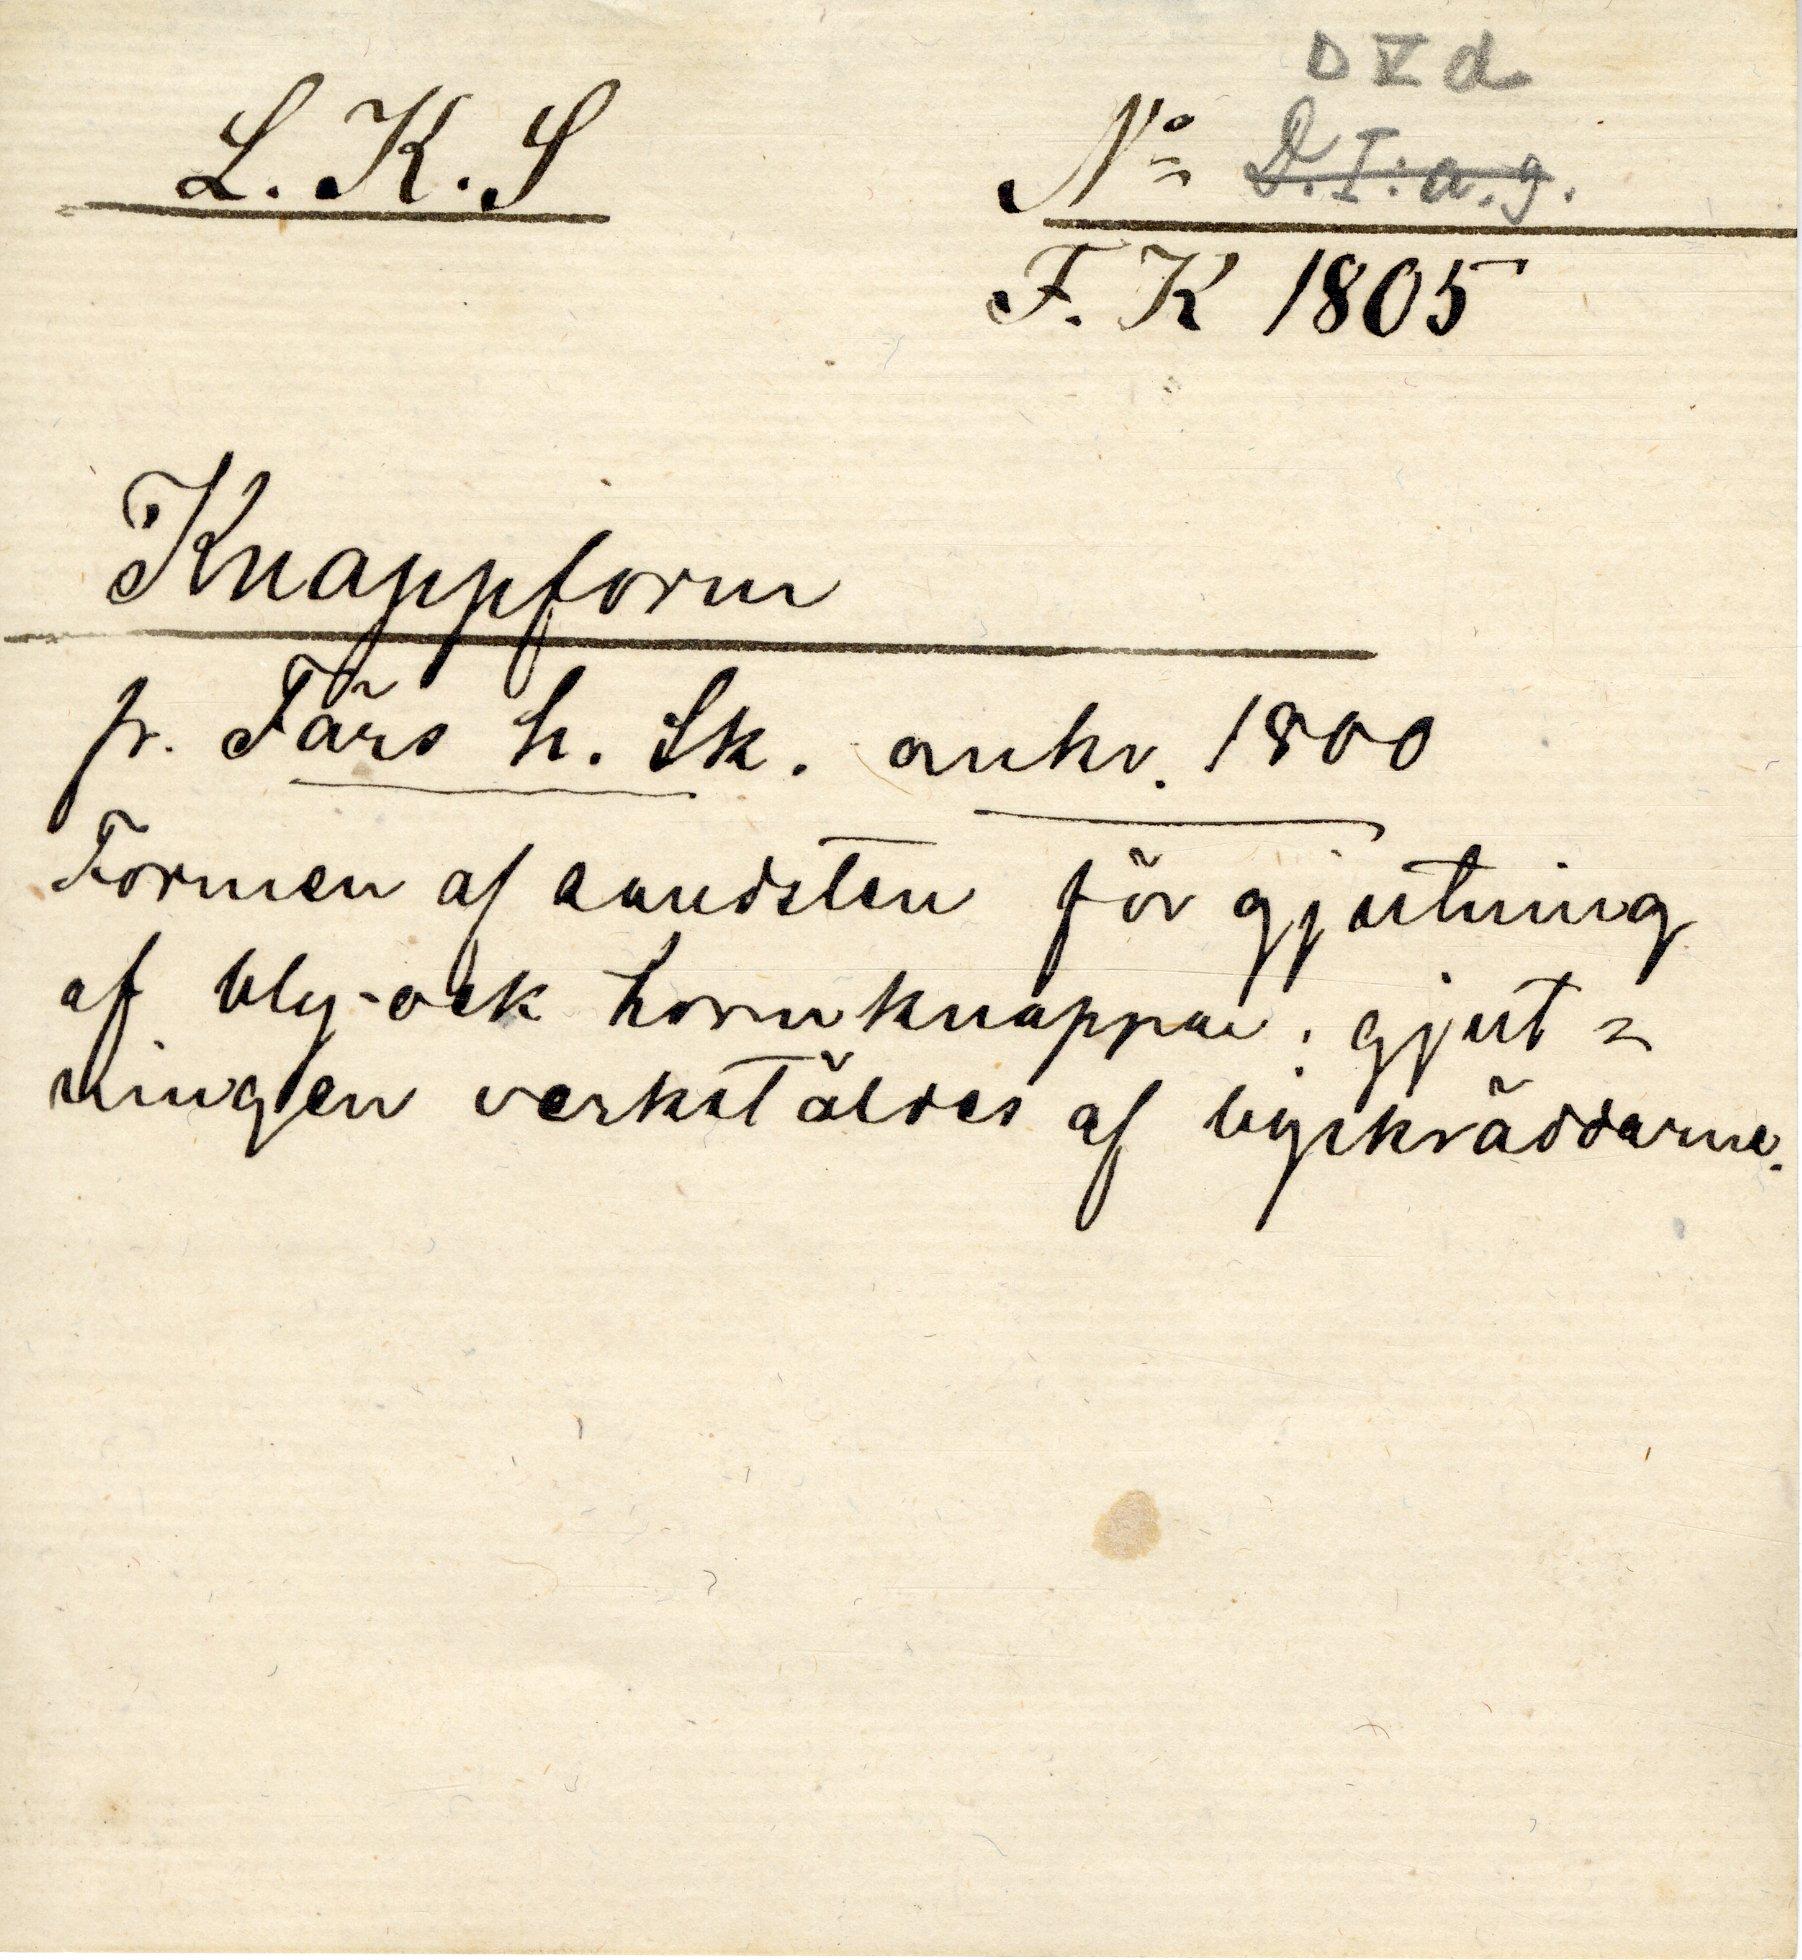 D V d
L. K. S
No D. I: a. g.
F. K 1805
Knappform
fr. Färs h. Sk. omkr. 1800
Formen af sandsten för gjutning
af bly- ock hornknappar; gjut =
ningen verkstäldes af byskräddarne.